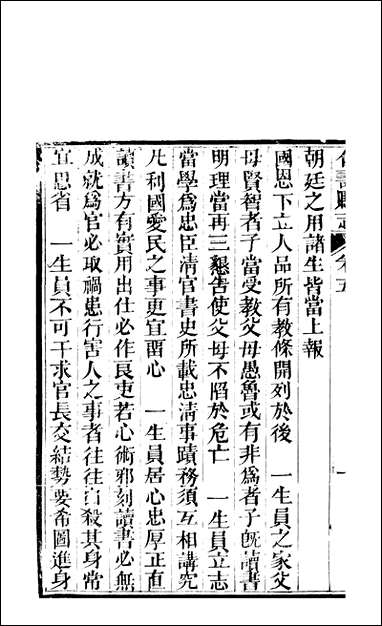 朝廷之用諸生皆當上報
國恩下立人品所有教條開列於後　一生員之家父
母賢智者子當受教父母愚魯或有非爲者子旣讀書
明理當再三懇告使父母不陷於危亡　一生員立志
當學爲忠臣清官書史所載忠清事蹟務須互相講究
凡利國愛民之事更宜畱心　一生員居心忠厚正直
讀書方有實用出仕必作良吏若心術邪刻讀書必無
成就爲官必取禍患行害人之事者往往自殺其身常
宜思省　一生員不可干求官長交結勢要希圖進身